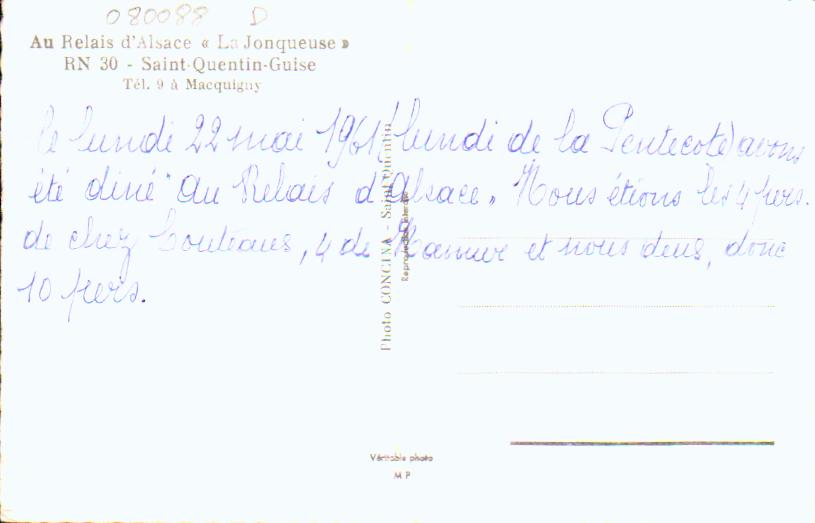 080088 D
Au Relais d'Alsace « La Jonqueuse »
RN 30 - Saint-Quentin-Guise
Tél. 9 à Macquigny
le lundi 22 mai 1961 (lundi de la Pentecote) avons
été diné "au Relais d'Alsace" Nous étions les 4 pers.
de chez Couteaux, 4 de Namur et nous deux, donc
10 pers.
Photo CONCINA - Saint-Quentin
Reproduction interdite
Véritable photo
M P